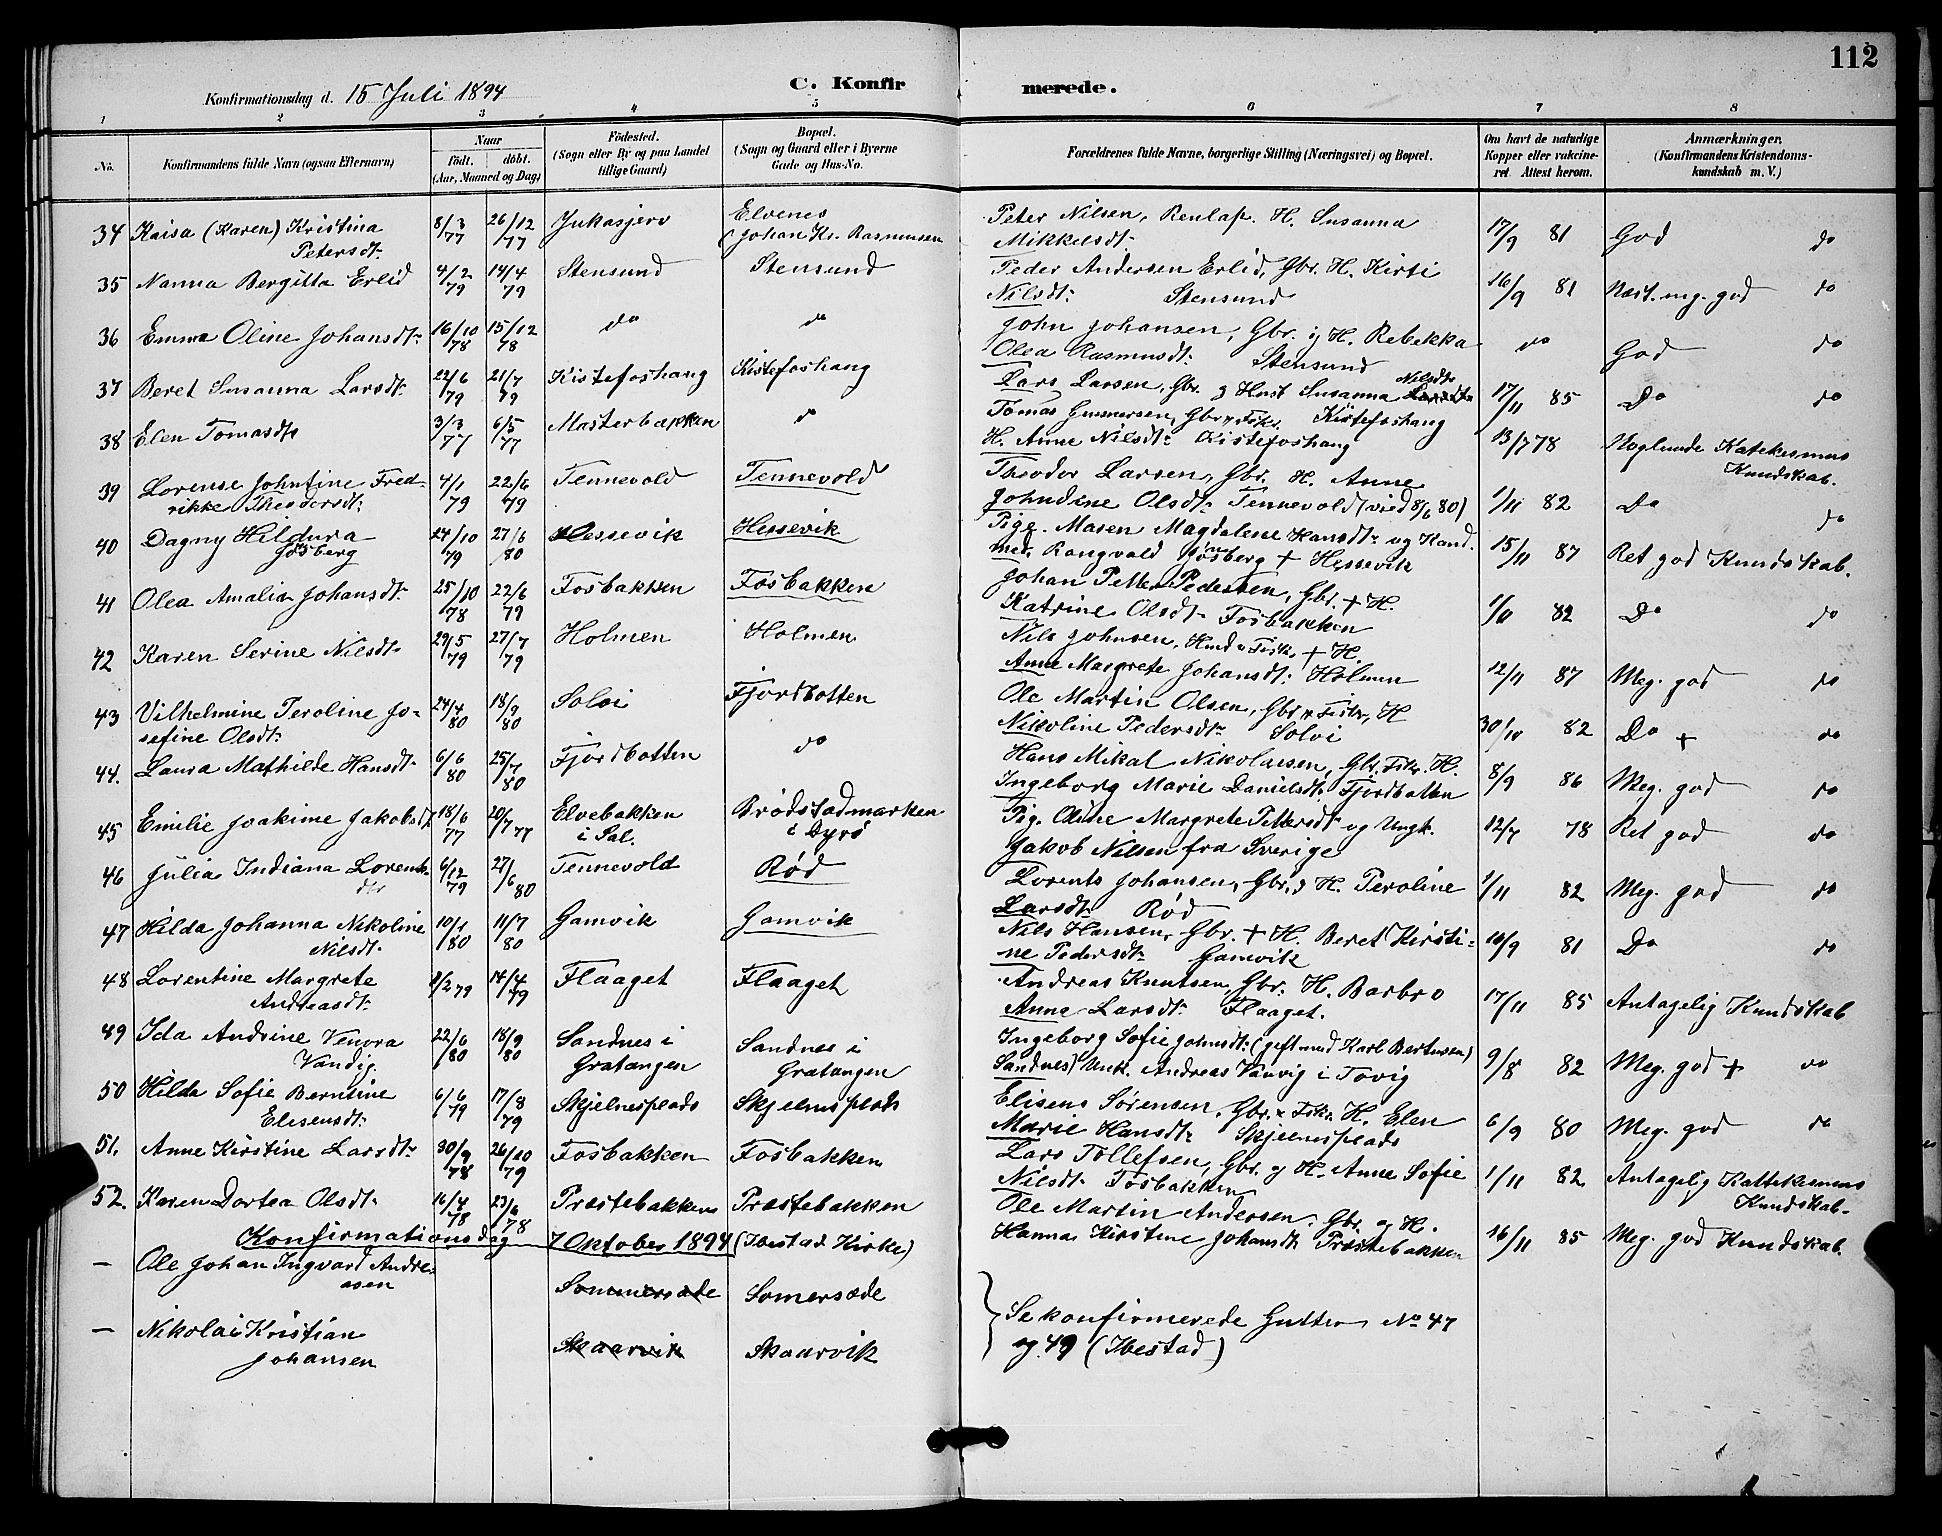 112
Konfirmationsdag d. 15 Juli 1894
C. Konfirmerede.
1 2 3 4 5 6 7 8
No. Konfirmandens fulde Navn (ogsaa Efternavn)
Naar födt. döbt. (Aar, Maaned og Dag)
Födested. (Sogn eller By og paa Landet tillige Gaard)
Bopæl. (Sogn og Gaard eller i Byerne Gade og Hus-No.
Forældrenes fulde Navne, borgerlige Stilling (Næringsvei) og Bopæl.
Om havt de naturlige Kopper eller vakcineret Attest herom.
Anmærkninger. (Konfirmandens Kristendomskundskab m. V.)
34 Kaisa (Karen) Kristina Petersdt. 8/3 77 26/12 77 Jukasjerv Elvenes (Johan Kr. Rasmussen Peter Nilsen, Renlap. H. Susanna Mikkelsdt. 17/9 81 God do
35 Nanna Bergitta Erlid 4/2 79 14/4 79 Stensund Stensund Peder Andersen Erlid, Gbr. H. Kirsti Nilsdt. Stensund 16/9 81 Næst. mg. god do
36 Emma Oline Johansdt. 16/10 78 15/12 78 do do John Johansen, Gbr. og H. Rebekka Olea Rasmusdt. Stensund do God do
37 Beret Susanna Larsdt. 22/6 79 21/7 79 Kistefoshaug Kistefoshaug Lars Larsen, Gbr. og Hust Susanna Nilsdt. Kistefoshaug 17/11 85 Do do
38 Elen Tomasdt. 3/3 77 6/5 77 Masterbakken do Tomas Gunnersen, Gbr. & Fisk. H. Anne Nilsdt. Kistefoshaug 13/7 78 Nøglunde Katekesmus Kundskab.
39 Lorense Johntine Fredrikke Theodorsdt. 4/1 79 22/6 79 Tennevold Tennevold Theodor Larsen, Gbr. H. Anne Johndine Olsdt. Tennevold (vied 8/6 80) 1/11 82 Do do
40 Dagny Hildura Jösberg 24/10 79 27/6 80 Hessevik Hessevik Pige Maren Magdalene Hansdt. og Handmed. Rangvald Jösberg + Hessevik 15/11 87 Ret god Kundskab.
41 Olea Amalia Johansdt. 25/10 78 22/6 79 Fosbakken Fosbakken Johan Petter Pedersen, Gbr. + H. Katrine Olsdt. Fosbakken 1/11 82 Do do
42 Karen Serine Nilsdt. 29/5 79 27/7 79 Holmen Holmen Nils Johnsen, Husm & Fisk. + H. Anne Margrete Johansdt. Holmen 12/11 87 Meg. god do
43 Vilhelmine Peroline Josefine Olsdt. 24/4 80 18/9 80 Solvi Fjordbotten Ole Martin Olsen, Gbr. & Fisk., H Nikoline Pedersdt. Solvi 30/10 82 Do + do
44. Laura Mathilde Hansdt. 6/6 80 25/7 80 Fjordbotten do Hans Mikal Nikolaisen, Gbr. Fisk. H. Ingeborg Marie Danielsdt. Fjordbotten 8/9 86 Meg. god do
45 Emilie Joakime Jakobsdt. 18/6 77 20/7 77 Elvebakken i Sal. Brödstadmarken i Dyrö Pig. Oline Margrete Pettersdt. og Ungk. Jakob Nilsen fra Sverige 12/7 78 Ret god do
46 Julia Indiana Lorentsdtr 6/12 79 27/6 80 Tennevold Rød Lorents Johansen, Gbr. og H. Peroline Larsdt. Rød 1/11 82 Meg. god do
47 Hilda Johanna Nikoline Nilsdt. 10/1 80 11/7 80 Gamvik Gamvik Nils Hansen, Gbr. + H. Beret Kirstine Pedersdt. Gamvik 16/9 81 Do do
48 Lorentine Margrete Andreasdt. 1/2 79 14/4 79 Flaaget Flaaget Andreas Knutsen, Gbr. H. Barbro Anne Larsdt. Flaaget. 17/11 85 Antagelig Kundskab
49 Ida Andrine Venora Vandig. 22/6 80 18/9 80 Sandnes i Gratangen Sandnes i Gratangen Ingeborg Sofie Johnsdt. (gift med Karl Bertunsen) Sandnes) Unk. Andreas Vanvig i Tovig 9/8 82 Meg. god + do
50 Hilda Sofie Berntine Elisensdt. 6/6 79 17/8 79 Skjelnesplads Skjelnesplads Elisens Sörensen, Gbr. & Fisk. H. Elen Marie Hansdt. Skjelnesplads 6/9 80 Meg. god do
51. Anne Kirstine Larsdt. 30/9 78 26/10 79 Fosbakken Fosbakken Lars Tollefsen, Gbr. og H. Anne Sofie Nilsdt. Fosbakken 1/11 82 Antagelig Kattekesmus Kundskab.
52. Karen Dortea Olsdt. 16/4 78 23/6 78 Præstebakken Præstebakken Ole Martin Andersen, Gbr. og H. Hanna Kirstine Johansdt. Præstebakken 16/11 85 Meg. god Kundskab.
Konfirmationsdag 7 Oktober 1894 (Ibestad Kirke)
— Ole Johan Ingvard Andreasen Sommersæde Somersæde
— Nikolai Kristian Johansen Skaarvik Skaarvik
Se konfirmerede Gutter No 47
og 49 (Ibestad)